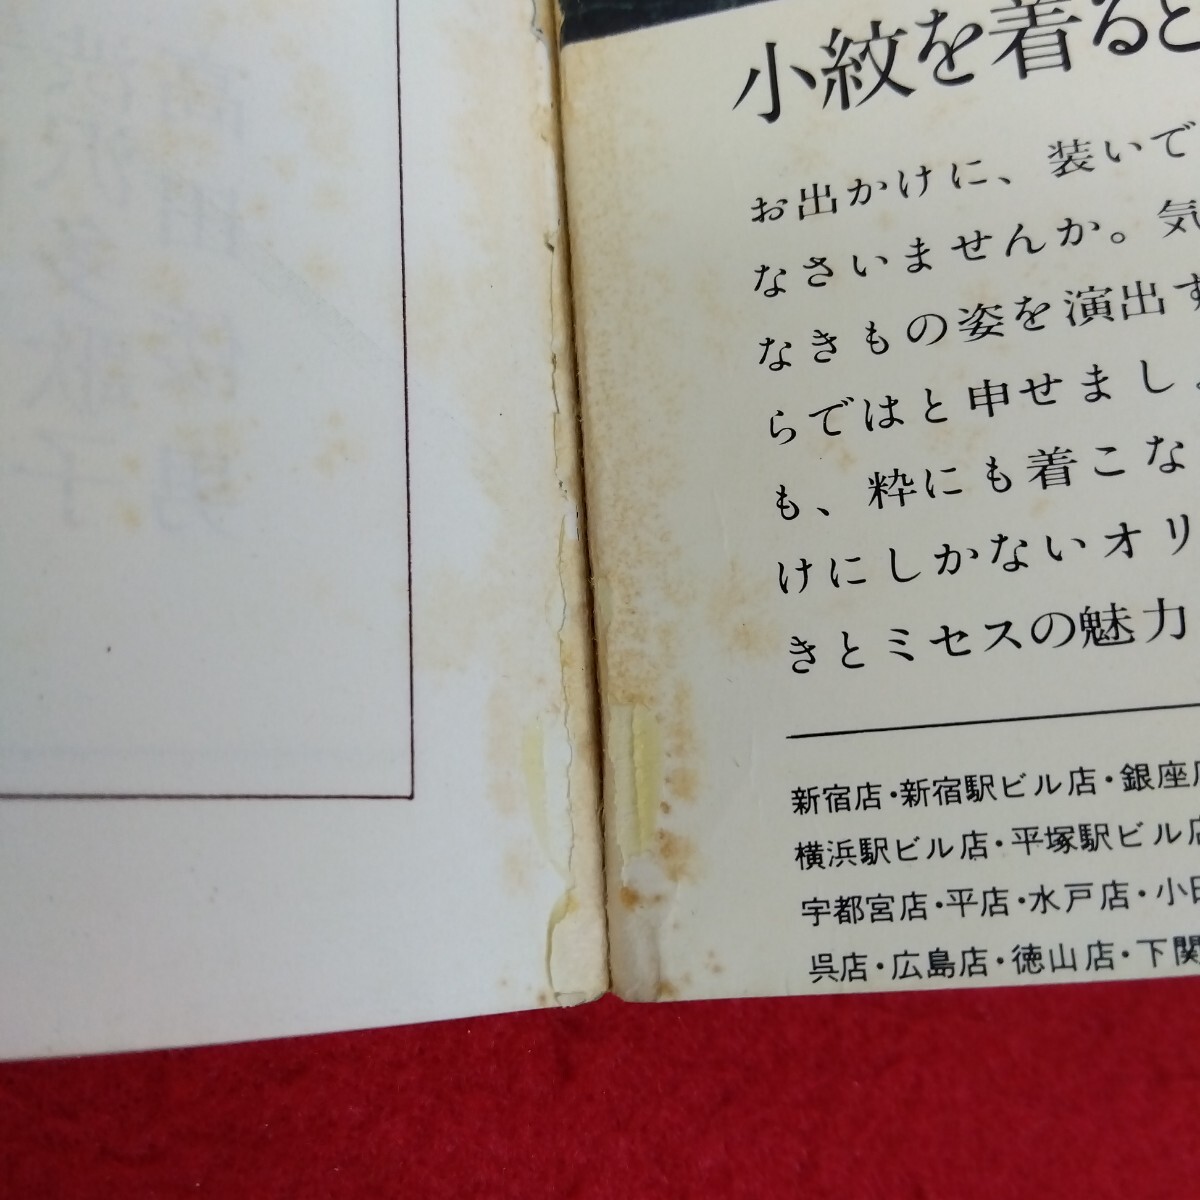 小紋を着ると
お出かけに、装いで
なさいませんか。気
なきもの姿を演出す
らではと申せましょ
も、粋にも着こな
けにしかないオリ
きとミセスの魅力
新宿店・新宿駅ビル店・銀座店
横浜駅ビル店・平塚駅ビル店
宇都宮店・平店・水戸店・小田
呉店・広島店・徳山店・下関